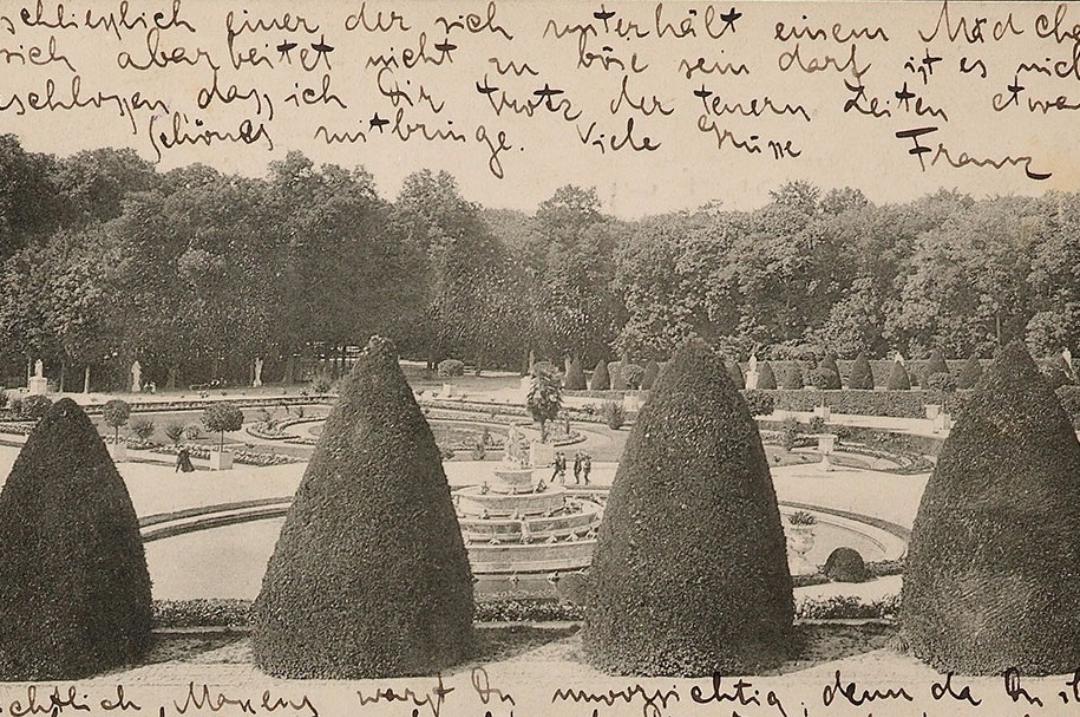 schließlich einer der sich unterhält einem Mädche
sich abarbeitet nicht zu böse sein darf ist es nich
schlossen dass ich Dir trotz der teuern Zeiten etwa
Schönes mitbringe. Viele Grüsse Franz
chtlich, warst Du unvorsichtig, denn da Du